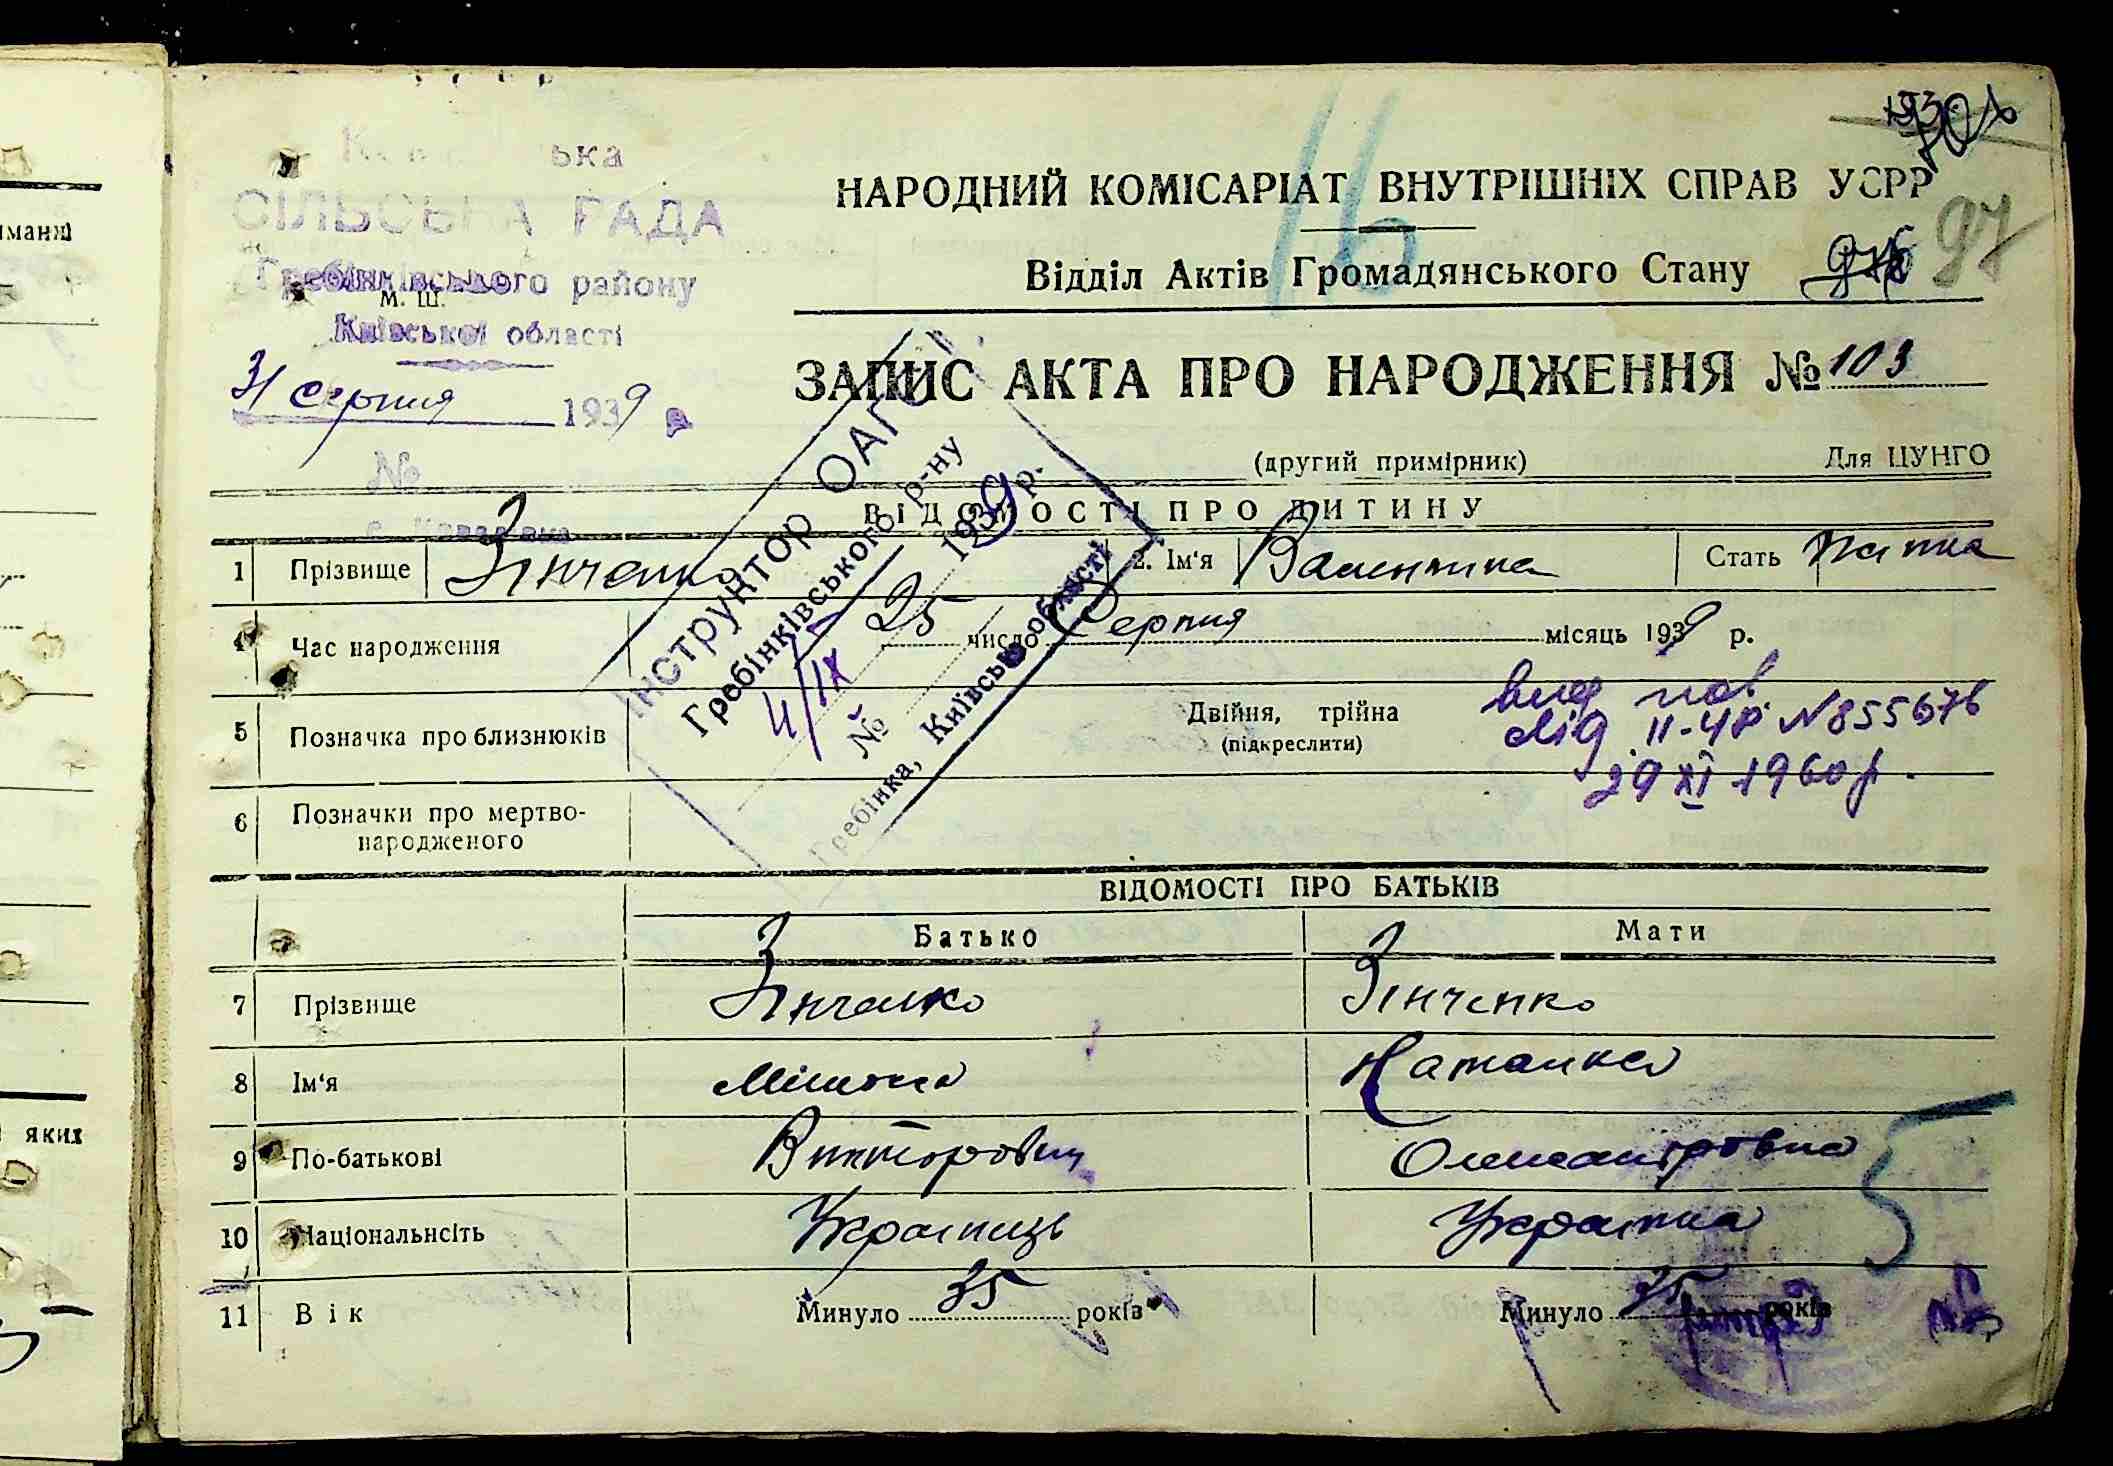 ська
СІЛЬСЬКА РАДА
Гребінківського району
м. Ш.
Київської області
31 серпня 1939 р
№
с. Ковалівка
НАРОДНИЙ КОМІСАРІАТ ВНУТРІШНІХ СПРАВ УСРР
16
97
Відділ Актів Громадянського Стану
ЗАПИС АКТА ПРО НАРОДЖЕННЯ № 103
(другий примірник) Для ЦУНГО
ВІДОМОСТІ ПРО ДИТИНУ
1 Прізвище Зінченко 2. Ім'я Валентина Стать
4 Час народження 25 число Серпня місяць 1939 р.
Інструктор ОАГС
Гребінківського р-ну
4/IX 1939 р.
№
Гребінка, Київської області
5 Позначка про близнюків Двійня, трійна
(підкреслити)
вид. пов.
свід. II-ЧР № 855676
29 XI 1960 р.
6 Позначки про мертво-
народженого
ВІДОМОСТІ ПРО БАТЬКІВ
Батько Мати
7 Прізвище Зінченко Зінченко
8 Ім'я Наталка
9 По-батькові Вікторович Олександровна
10 Національнсіть Українець Українка
5
11 Вік Минуло 35 років Минуло 35 років
иманні
яких